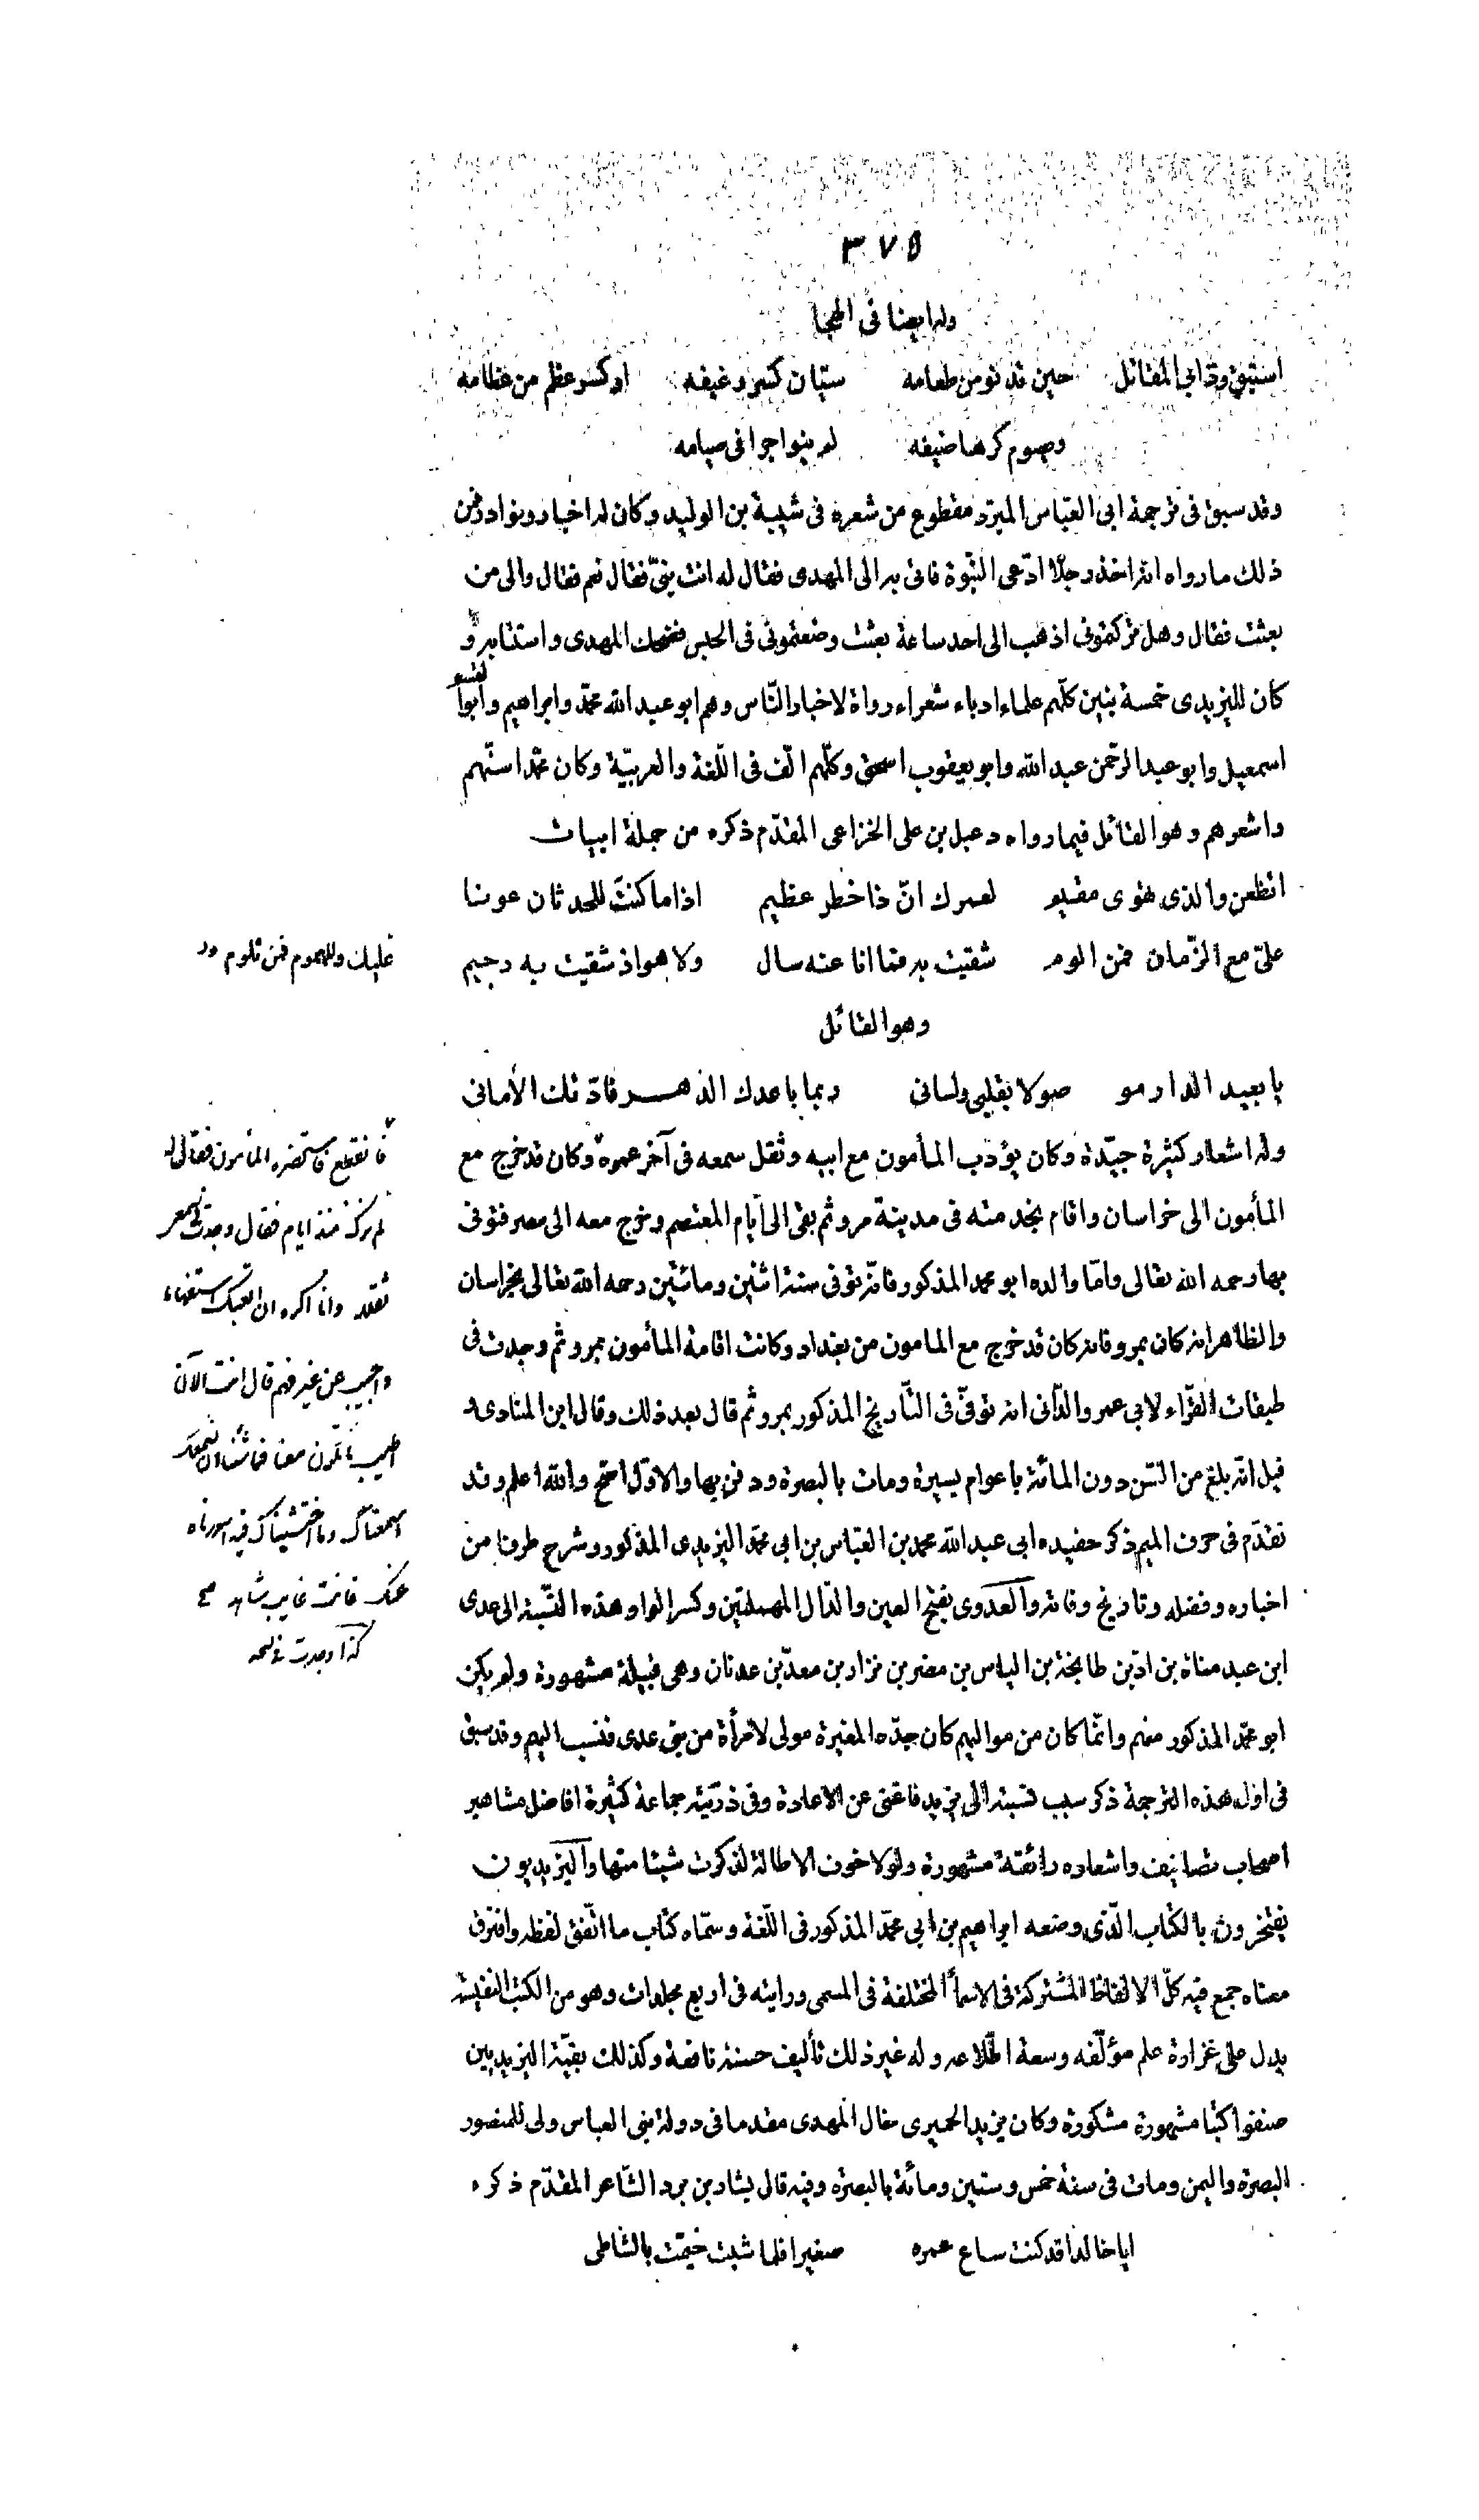 ٣٧٥
وله ايضا فى الهجا
استبق ود ابى المقاتل حين تدنو من طعامه سيان كسر رغيفه او كسر عظم من عظامه
وصوم كرها ضيفه لم ينو اجرا فى صيامه
وقد سبق فى ترجمة ابى العباس المبرّد مقطوع من شعره فى شيبة بن الوليد وكان له اخبار ونوادر فمن
ذلك ما رواه انه اخذ رجلا ادّعى النبّوة فاتى به الى المهدى فقال له انت نبىّ فقال نعم فقال والى من
بعثت فقال وهل تركتمونى اذهب الى احد ساعة بعثت وضعتمونى فى الحبس فضحك المهدى واستتابه و
كان لليزيدى خمسة بنين كلّهم علماء ادباء شعراء رواة لاخبار النّاس وهم ابو عبد الله محمّد وابراهيم وابوا لقسم
اسمعيل وابو عبد الرّحمن عبد الله وابو يعقوب اسحق وكلّهم الّف فى اللّغة والعربيّة وكان محمّد اسنّهم
واشعرهم وهو القائل فيما رواه دعبل بن على الخزاعى المقدّم ذكره من جملة ابيات
اتظعن والذى تهوى مقيم لعمرك انّ ذا خطر عظيم اذا ما كنت للحدثان عونا
علىّ مع الزّمان فمن الوم شقيت به فما انا عنه سال ولا هو اذ شقيت به رحيم
عليك وللهموم فمن تلوم
وهو القائل
يا بعيد الدار موصولا بقلبى ولسانى ربما باعدك الدهر فادّتك الأمانى
وله اشعار كثيرة جيّدة وكان يؤدّب المأمون مع ابيه وثقل سمعه فى آخر عمره وكان قد خرج مع
المأمون الى خراسان واقام بخدمته فى مدينة مرو ثم بقى الى ايّام المعتصم وخرج معه الى مصر فتوفى
بها رحمه الله تعالى وامّا والده ابو محمد المذكور فانّه توفى سنة اثنين ومائتين رحمه الله تعالى بخراسان
والظاهر انه كان بمرو فانه كان قد خرج مع المامون من بغداد وكانت اقامة المأمون بمرو ثم وجدت فى
طبقات القرّاء لابى عمرو الدّانى انه توفىّ فى التّاريخ المذكور بمرو ثم قال بعد ذلك وقال ابن المنادى
قيل انّه بلغ من السّن دون المائة باعوام يسيرة ومات بالبصرة ودفن بها والاوّل اصحّ والله اعلم وقد
تقدّم فى حرف الميم ذكر حفيده ابى عبد الله محمد بن العبّاس بن ابى محمّد اليزيدى المذكور وشرح طرفا من
اخباره وفضله وتاريخ وفاته والعدوى بفتح العين والدّال المهملتين وكسر الواو هذه النّسبة الى عدى
ابن عبد مناة بن ادّ بن طابخة بن الياس بن مضر بن نزار بن معدّ بن عدنان وهى قبيلة مشهورة ولم يكن
ابو محمّد المذكور منهم وانّما كان من مواليهم كان جدّه المغيرة مولى لامرأة من بنى عدى فنسب اليهم وقد سبق
فى اول هذه الترجمة ذكر سبب نسبته الى يزيد فاغنى عن الاعادة وفى ذرّيته جماعة كثيرة افاضل مشاهير
اصحاب تصانيف واشعاره رائقة مشهورة ولولا خوف الاطالة لذكرت شيئا منها واليزيديون
يفتخرون بالكتاب الّذى وضعه ابراهيم بن ابى محمّد المذكور فى اللّغة وسمّاه كتاب ما اتّفق لفظه وافترق
معناه جمع فيه كلّ الالفاظ المشتركة فى الاسمأ المختلفة فى المسمى ورايته فى اربع مجلدات وهو من الكتب النفيسة
يدل على غزارة علم مؤلّفه وسعة اطّلاعه وله غير ذلك تأليف حسنة نافعة وكذلك بقيّة اليزيديين
صنفوا كتبا مشهورة مشكورة وكان يزيد الحميرى خال المهدى مقدما فى دولة بنى العباس ولى للمنصور
البصرة واليمن ومات فى سنة خمس وستين ومائة بالبصرة وفيه قال بشار بن برد الشّاعر المقدّم ذكره
ابا خالد قد كنت سباح غمره صغيرا فلما شبت خيّمت بالشاطى
فانقطع فاستحضره المأمون فقال له
لم نرك منذ ايام فقال وجدت لسمعى
ثقلا وانا اكره ان اتعبك استفهاما
واجيب عن غير فهم قال انت الآن
اطيب ما تكون معنا فما شئنا ان نسمعك
اسمعناك وما احتشمناك فيه اسررناه
عنك فانت غايب شاهد صح
كذا وجدت فى نسخه